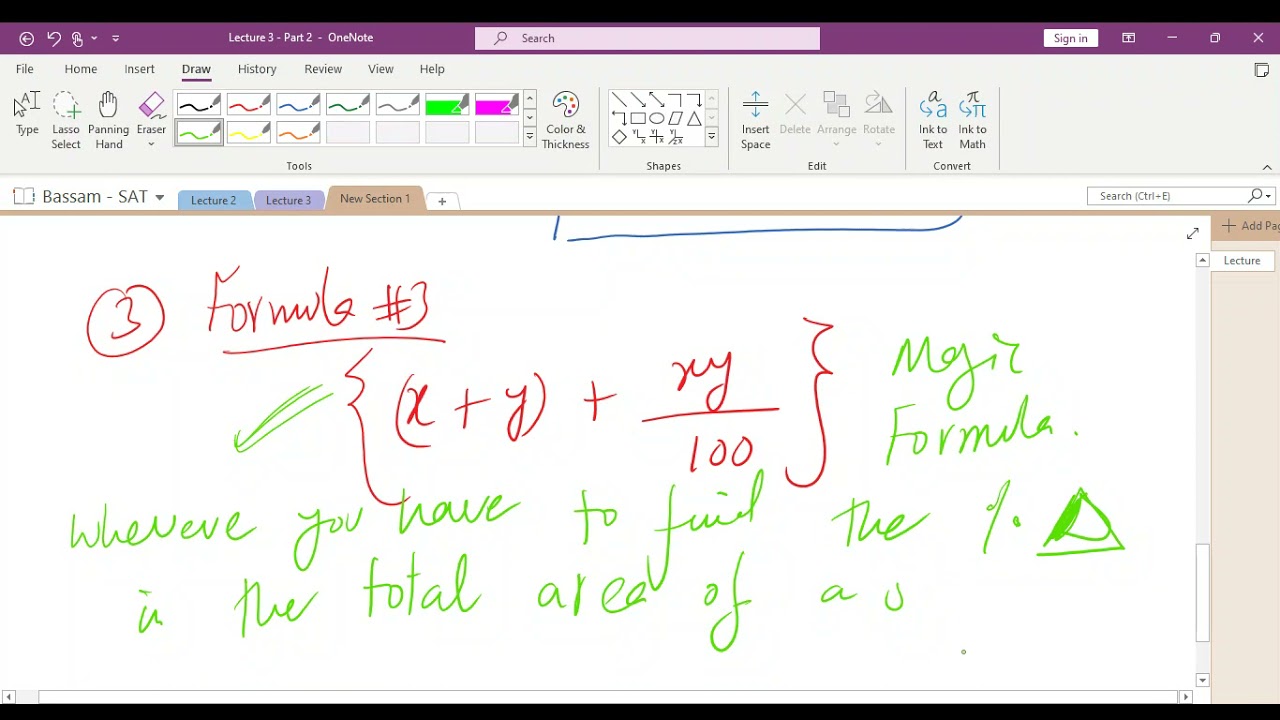 Lecture 3 - Part 2 - OneNote
Search
Sign in
File Home Insert Draw History Review View Help
Type
Lasso Select
Panning Hand
Eraser
Color & Thickness
Insert Space
Delete
Arrange
Rotate
Ink to Text
Ink to Math
Tools
Shapes
Edit
Convert
Bassam - SAT
Lecture 2
Lecture 3
New Section 1
Search (Ctrl+E)
Add Pag
Lecture
3 Formula #3
{(x + y) + xy/100}
Magic
Formula.
wheneve you have to find the % Δ
in the total area of a